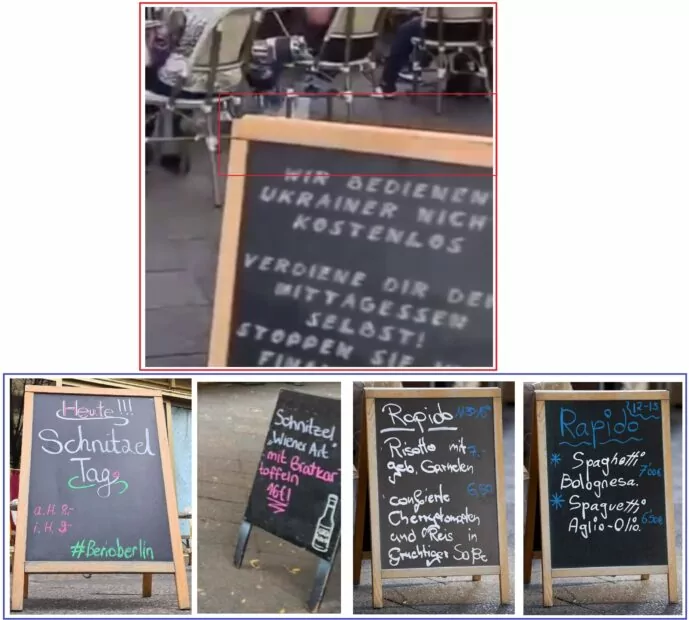 WIR BEDIENEN
UKRAINER NICH
KOSTENLOS
VERDIENE DIR DEN
MITTAGESSEN
SELBST!
STOPPEN SIE
Heute!!!
Schnitzel
Tag
a.H. 8,-
i.H. 9,-
#Berioberlin
Schnitzel
"Wiener Art"
mit Bratkar
toffeln
Rapido
Risotto mit
geb. Garnelen
7,-
confierte
6,50
und Reis in
fruchtiger Soße
Rapido
12-15
Spaghetti
7'00€
Bolognesa.
Spaguetti
6'50€
Aglio-Olio.